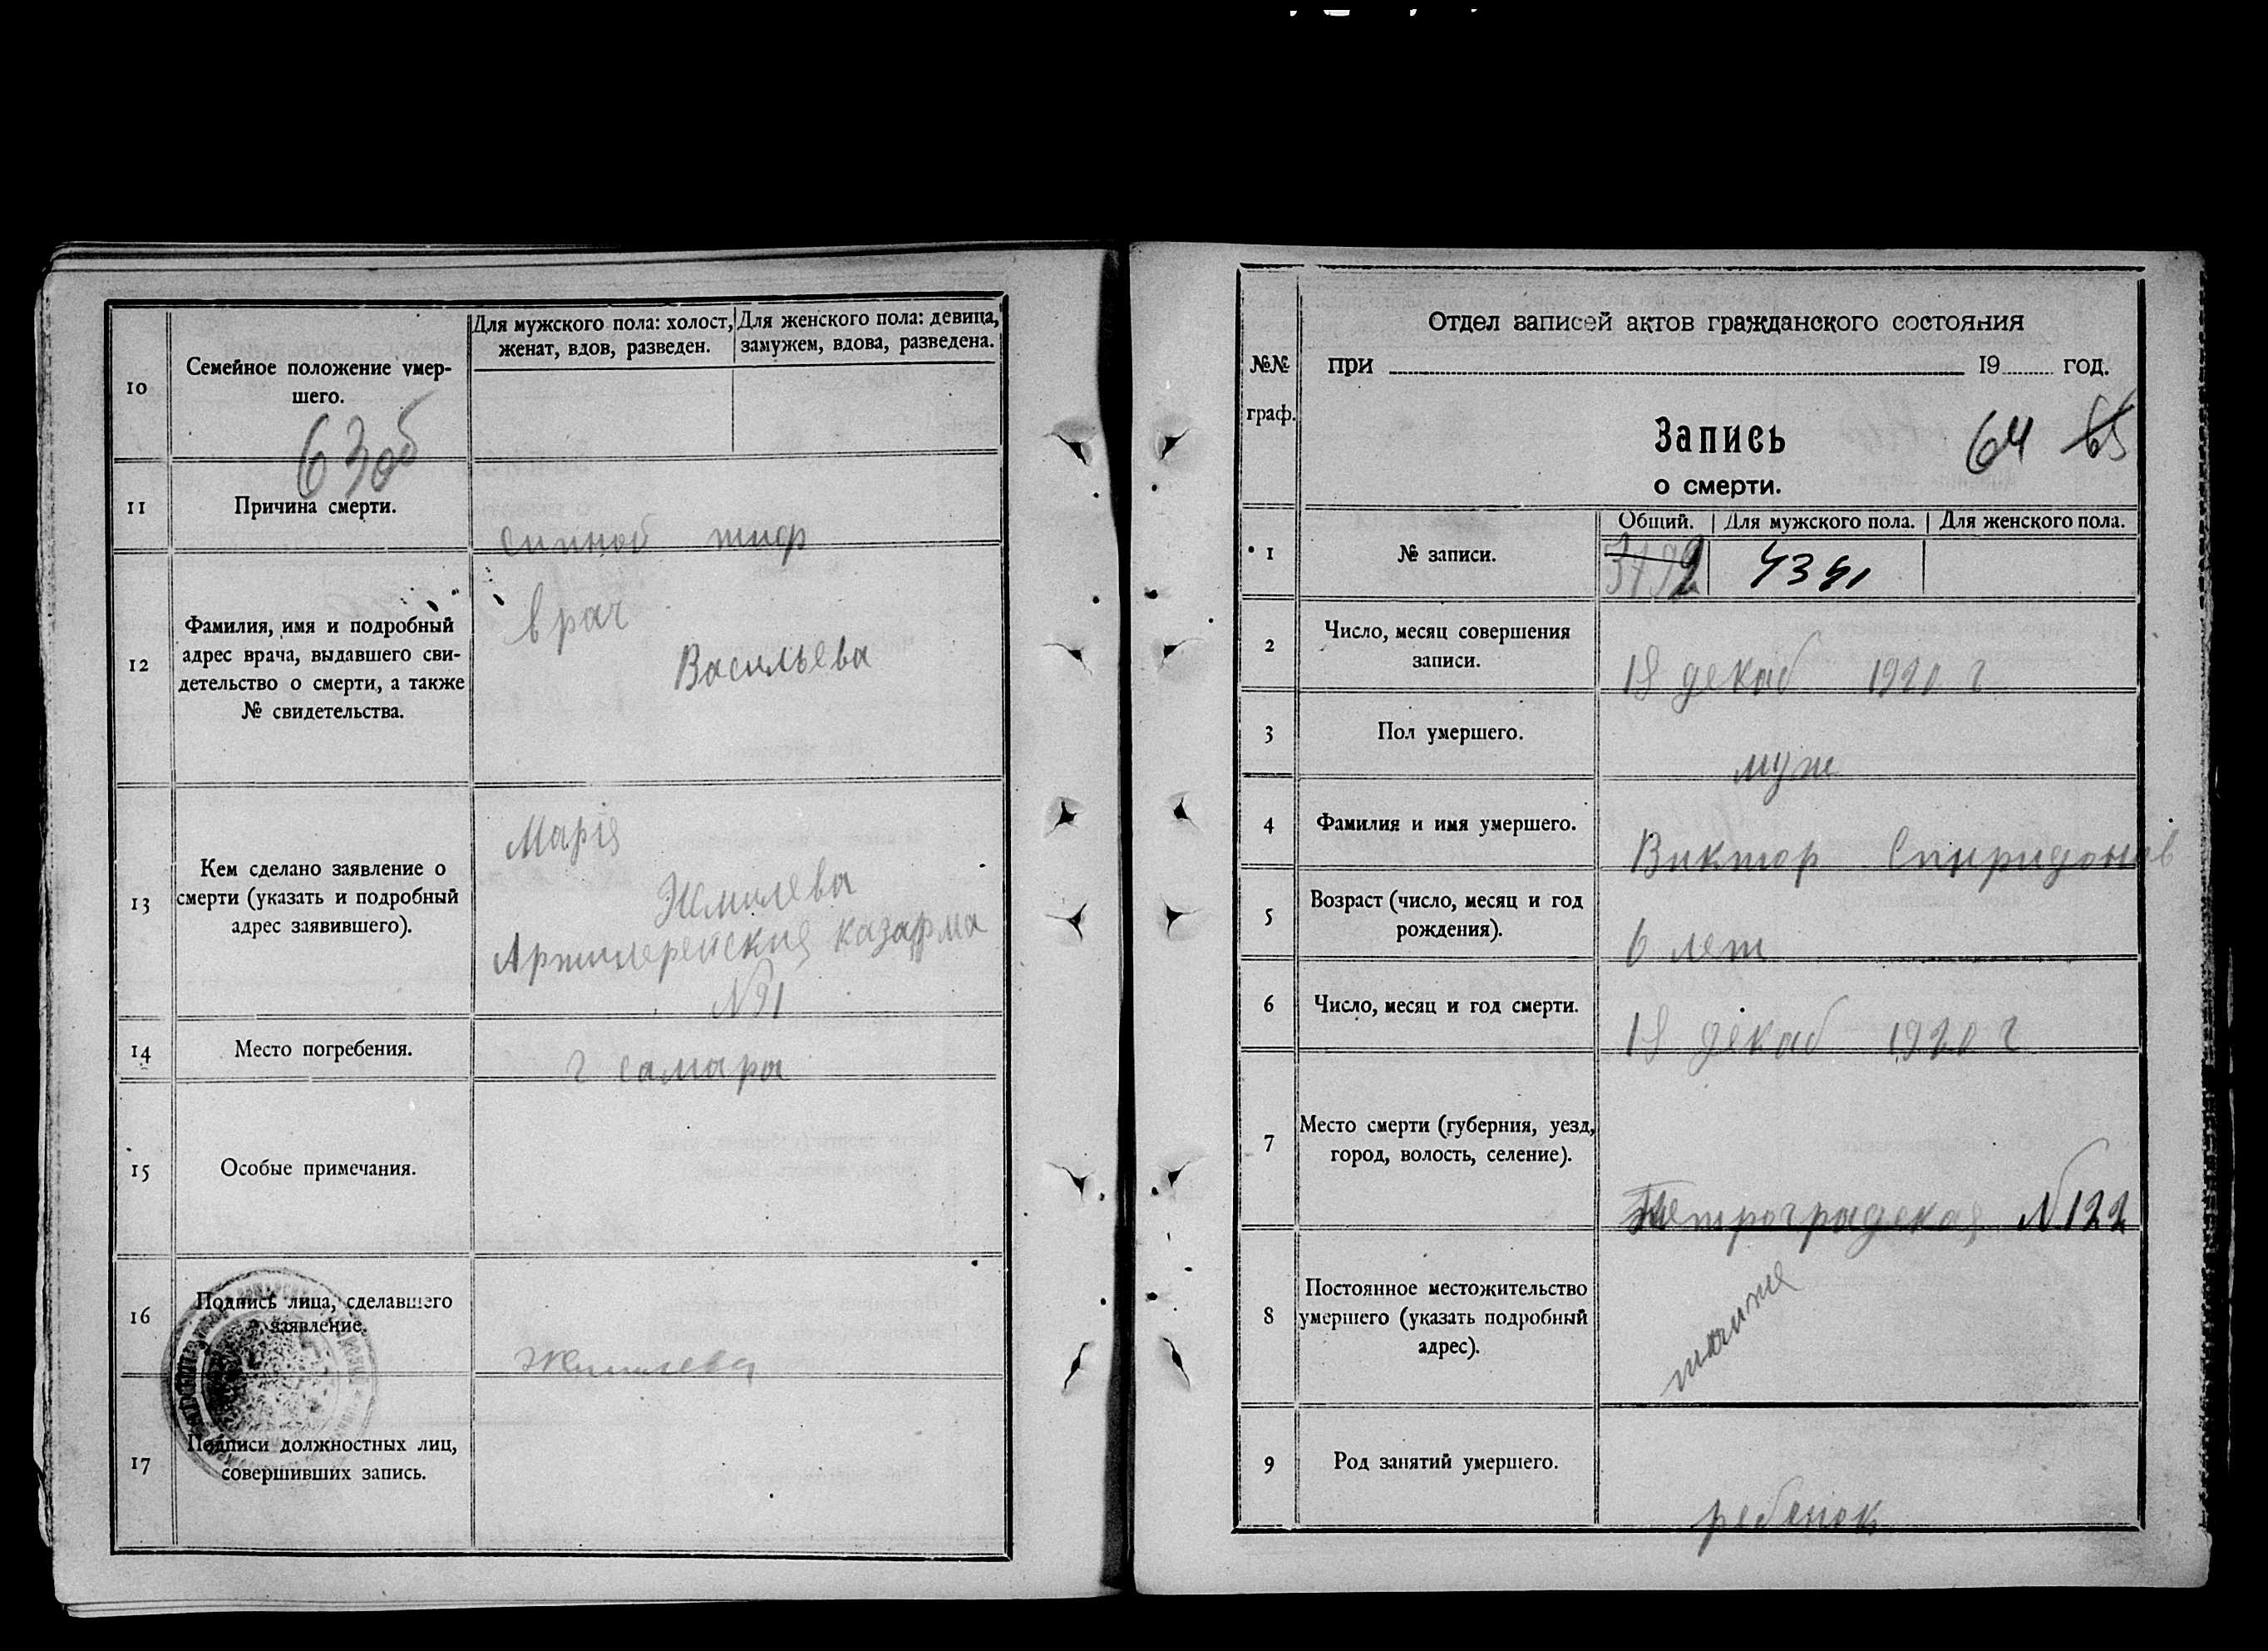 10
Семейное положение умер-
шего.
Для мужского пола: холост,
женат, вдов, разведен.
Для женского пола: девица,
замужем, вдова, разведена.
63об
11
Причина смерти.
сипной тиф
12
Фамилия, имя и подробный
адрес врача, выдавшего сви-
детельство о смерти, а также
№ свидетельства.
врач
Васильева
13
Кем сделано заявление о
смерти (указать и подробный
адрес заявившего).
Марія
Жмилева
Артилерейския казарма
№91
14
Место погребения.
г самара
15
Особые примечания.
16
Подпись лица, сделавшего
заявление.
Жмилева
17
Подписи должностных лиц,
совершивших запись.
№№
граф.
Отдел записей актов гражданского состояния
при 19 год.
Запись
о смерти.
64 65
1
№ записи.
Общий.
Для мужского пола.
Для женского пола.
2
Число, месяц совершения
записи.
18 декаб 1920 г
3
Пол умершего.
муж
4
Фамилия и имя умершего.
Виктор Спиридонов
5
Возраст (число, месяц и год
рождения).
6 лет
6
Число, месяц и год смерти.
18 декаб 1920 г
7
Место смерти (губерния, уезд,
город, волость, селение).
Петроградская №122
8
Постоянное местожительство
умершего (указать подробный
адрес).
9
Род занятий умершего.
ребенок